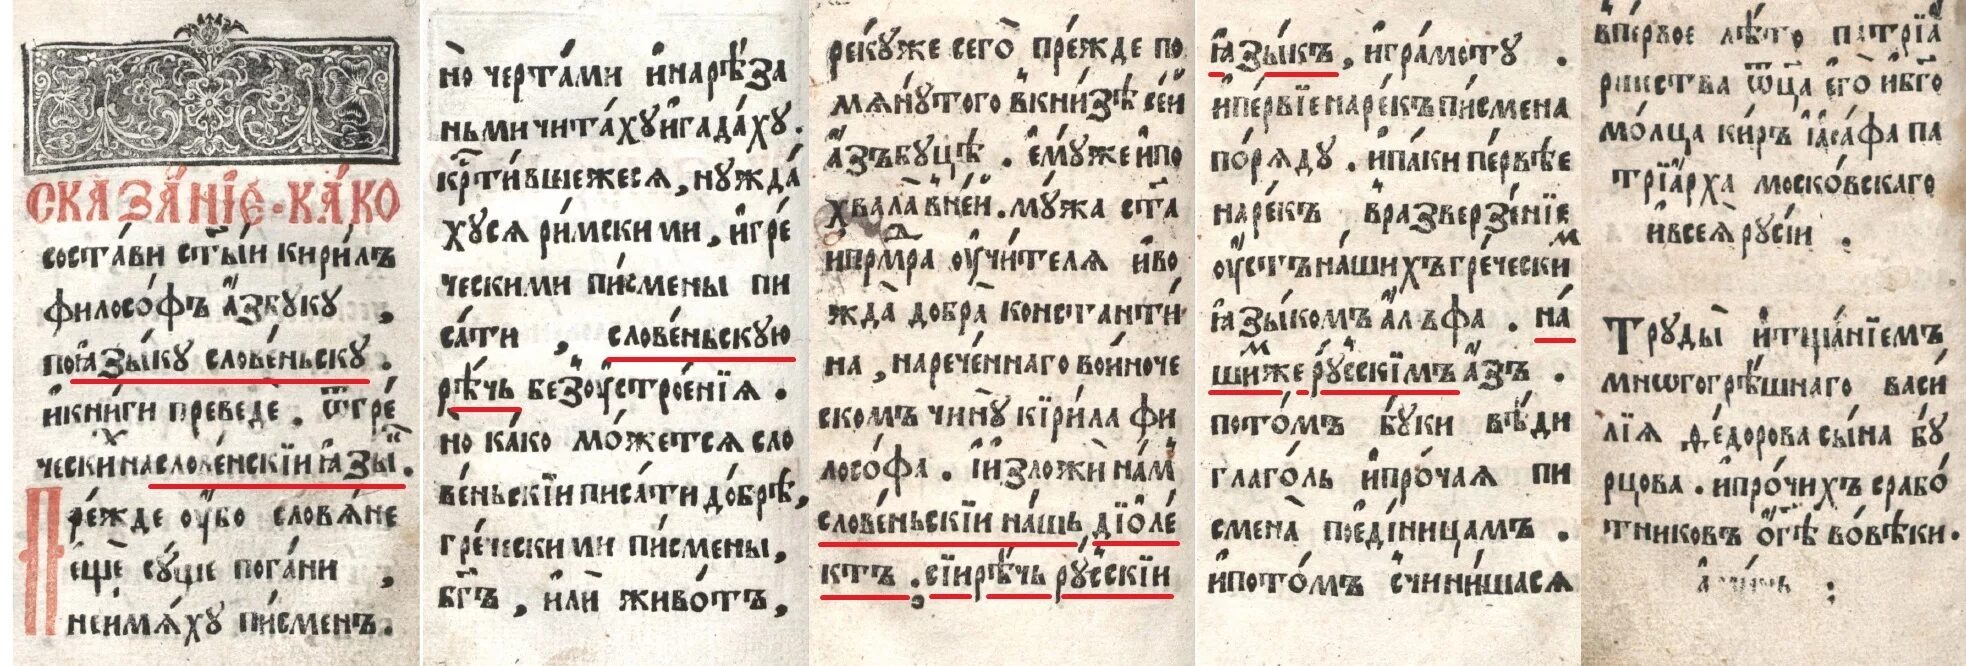 СКАЗА́НїЕ · КА́КО
соста́ви ст҃ы́й кири́лъ
филосо́фъ а҆́збꙋкꙋ ,
поꙗ҆зы́кꙋ слове́ньскꙋ .
и҆кни́ги преведѐ . ѿгре́
ческихнасловенскїи ꙗ҆зы́ .
Пре́жде ᲂу҆́бо словѧ́не
є҆щѐ сꙋ́ще пога́ни ,
неи҆мѧ́хꙋ пи́сменъ .
но̀ черта́ми и҆нарѣ́за
ньми чита́хꙋ и҆гада́хꙋ .
кр҃ти́вшежесѧ , нꙋжда́
хꙋсѧ ри́мскими , и҆гре́
ческими пи́смены пи
са́ти , слове́ньскꙋю
рѣ́чь безᲂу҆строе́нїѧ .
но ка́ко мо́жетсѧ сло
ве́ньскїи писа́ти до́брѣ ,
гре́ческими пи́смены ,
бг҃ъ , и҆лѝ живо́тъ ,
рекꙋ́же сего̀ пре́жде по
мѧнꙋ́того вкни́зѣ се́й
а҆́збꙋцѣ . є҆мꙋ́же и҆по
хвала̀ вне́й . мꙋ́жа ст҃а
и҆прмⷣра ᲂу҆чи́телѧ и҆во
жда̀ добра̀ констѧнти́
на , нарече́ннаго во и҆ноче
скомъ чи́нꙋ кїри́ла фи
лосо́фа . и҆ и҆зложѝ на́м
слове́ньскїи на́шь дїѧ҆ле́
ктъ , сїи рѣ́чь рꙋ́сскїи
ꙗ҆зы́къ , и҆гра́мотꙋ .
и҆пе́рвїе наре́къ пи́смена
по́рѧдꙋ . и҆па́ки пе́рвѣе
наре́къ вразверзе́нїе
ᲂу҆́стъ на́шихъ гре́чески м
ꙗ҆зы́комъ а҆́льфа . на́
шим же рꙋ́сскїмъ а҆́зъ .
пото́мъ бꙋ́ки вѣ́ди
глаго́ль и҆про́чаѧ пи
смена̀ поє҆ди́ницамъ .
и҆пото́мъ счини́шасѧ
впе́рвое лѣ́то патрїа́
ршества ѻ҆тц҃а є҆го̀ и҆бг҃о
мо́лца ки́ръ і҆ѡаса́фа па
трїа́рха моско́вскаго
и҆всеѧ̀ рꙋсі́и .
Трꙋды̀ и҆тща́нїемъ
многогрѣ́шнаго васи́
лїѧ ѳе́дорова сы́на бꙋ́
рцова . и҆про́чихъ срабо́
тниковъ
вовѣ́ки .